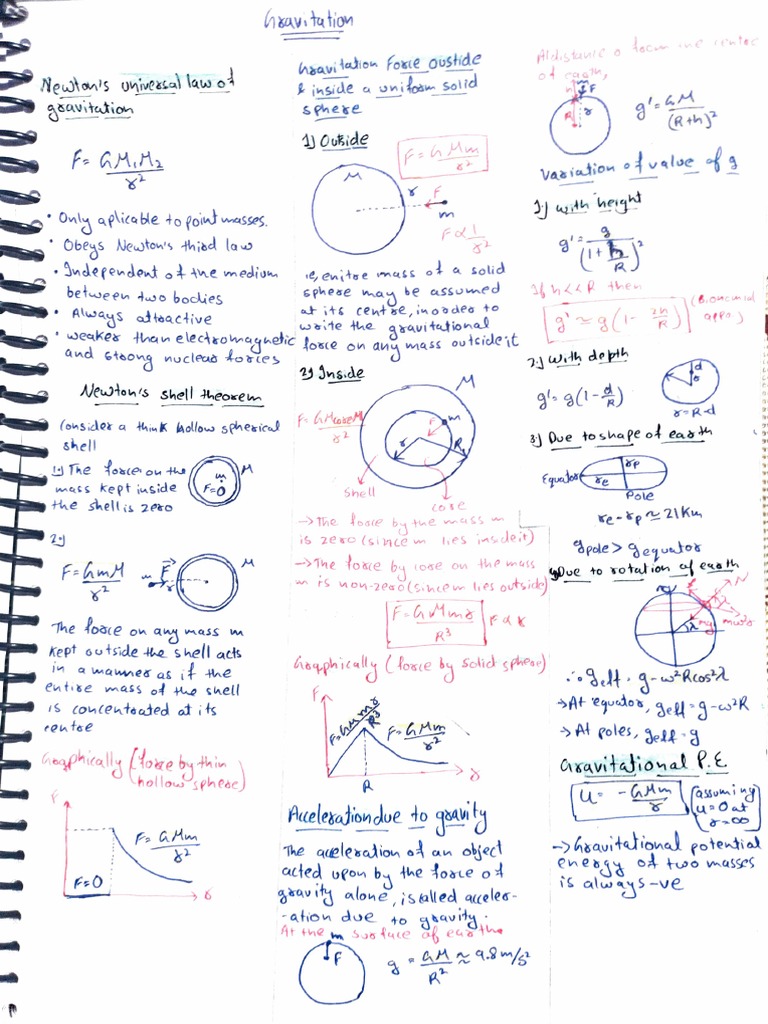 Gravitation
Newton's universal law of
gravitation
F = GM₁M₂
r²
• Only aplicable to point masses.
• Obeys Newton's third law
• Independent of the medium
between two bodies
• Always attractive
• weaker than electromagnetic
and strong nuclear forces
Newton's shell theorem
Consider a think hollow spherical
shell
1.) The force on the
mass kept inside
the shell is zero
m
F=0
M
2.)
F = GmM
r²
m
F
r
The force on any mass m
kept outside the shell acts
in a manner as if the
entire mass of the shell
is concentrated at its
centre
Graphically (force by thin
hollow sphere)
F
F = GMm
r²
F=0
r
Gravitation Force oustide
& inside a uniform solid
sphere
1) Outside
F = GMm
r²
M
r
F
m
F ∝ 1
r²
i.e, enitre mass of a solid
sphere may be assumed
at its centre, in order to
write the gravitational
force on any mass outside it
2) Inside
M
F = GMcoreM
r²
m
F
r
R
shell
core
→ The force by the mass m
is zero (since m lies insdeit)
→ The force by core on the mass
m is non-zero (since m lies outside)
F = GMmr
R³
F ∝ r
Graphically (force by solid sphere)
F
F = GMmr
R³
F = GMm
r²
R
r
Acceleration due to gravity
The acceleration of an object
acted upon by the force of
gravity alone, is called acceler-
-ation due to gravity.
At the surface of earth
m
F
g = GM ≈ 9.8 m/s²
R²
At distance r from the centre
of earth,
m
h
F
R
r
g' = GM
(R+h)²
Variation of value of g
1.) with height
g' = g
(1 + h/R)²
If h<<R then
g' ≃ g(1 - 2h/R)
2.) with depth
g' = g(1 - d/R)
d
r
r=R-d
3.) Due to shape of earth
Equator
re
rp
Pole
re - rp ≃ 21 Km
gpole > gequator
4) Due to rotation of earth
N
λ
mg
mω²r
∴ geff = g - ω²Rcos²λ
→ At equator, geff = g - ω²R
→ At poles, geff = g
Gravitational P.E
U = - GMm
r
(assuming
U=0 at
r=∞)
→ Gravitational potential
energy of two masses
is always -ve